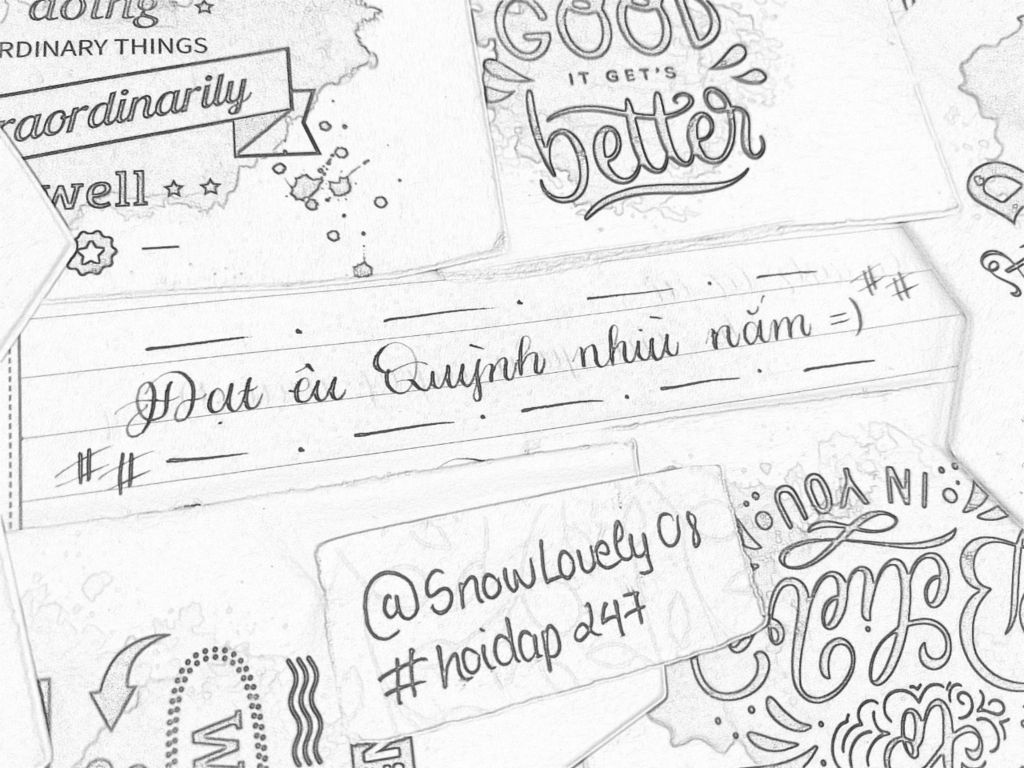 doing
RDINARY THINGS
raordinarily
well
GOOD
IT GET'S
better
## Đạt êu Quỳnh nhìu năm =) ##
@SnowLovely08
#hoidap247
IN YOU
W